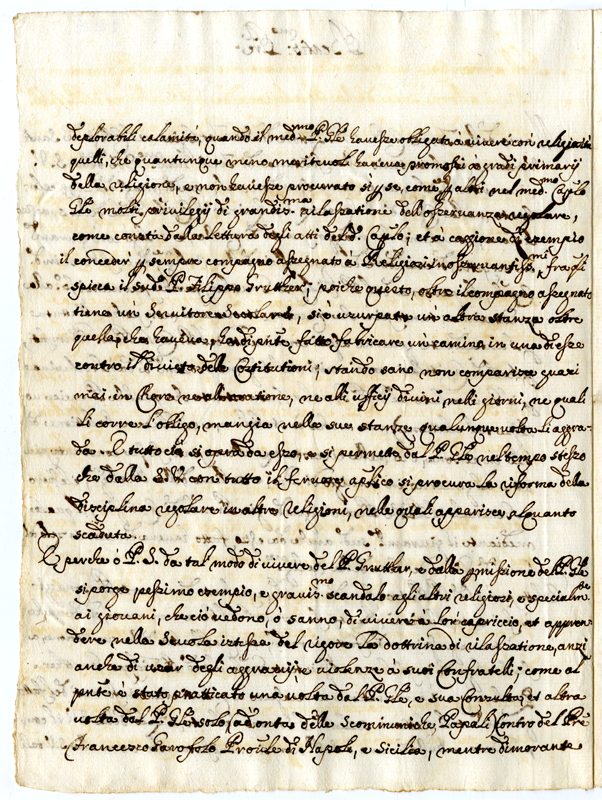 deplorabili calamità, quando il med.mo P. Gle havesse obligato à vivere con religiosità
quelli, che quantunque meno meritevoli haveva promossi a gradi primarij
della religione, e non havesse procurato sì p se, come p altri nel med.mo Caplo
Gle molti privilegij di grandis.ma rilassatione dell'osservanza regolare,
come consta dalla lettura degli atti del d.o Caplo; et à caggione di esempio
il conceder p sempre compagno assegnato à Religiosi Inosservantiss.mi, fra gli
spicca il sud.o P. Filippo Gruther; poiche questo, oltre il compagno assegnato
tiene un Servitore Secolare, si è usurpata un'altra stanza oltre
quella, che haveva, ha di pnte fatto fabricare un camino in una di esse
contro il divieto delle Costitutioni; stando sano non comparisce quasi
mai in Choro ne all'oratione, ne alli ufficij divini nelli giorni, ne quali
li corre l'obligo, mangia nelle sue stanze qualunque volta li aggra-
da. E tutto ciò si opera da esso, e si permette dal P. Gle nel tempo stesso
che dalla S.V. con tutto il fervore aplico si procura la riforma della
disciplina regolare in altre religioni, nelle quali apparisce alquanto
scaduta.
E perche ò P. S. da tal modo di vivere del P. Gruther, e dalla pmissione del P. Gle
si porge pessimo esempio, e gravis.mo scandalo agli altri religiosi, e specialm.te
ai giovani, che ciò vedono, ò sanno, di vivere à lor capriccio, et appren-
dere nella scuola istessa del rigore la dottrina di rilassatione, anzi
anche di usar degli aggravij, e violenze à suoi Confratelli; come al
pnte è stato pratticato una volta dal P. Gle, e sua Consulta, et altra
volta dal P. Gle solo, ad onta delle Scommuniche Papali Contro del Pre
Francesco Garofolo Proule di Napole, e Sicilia, mentre dimorante